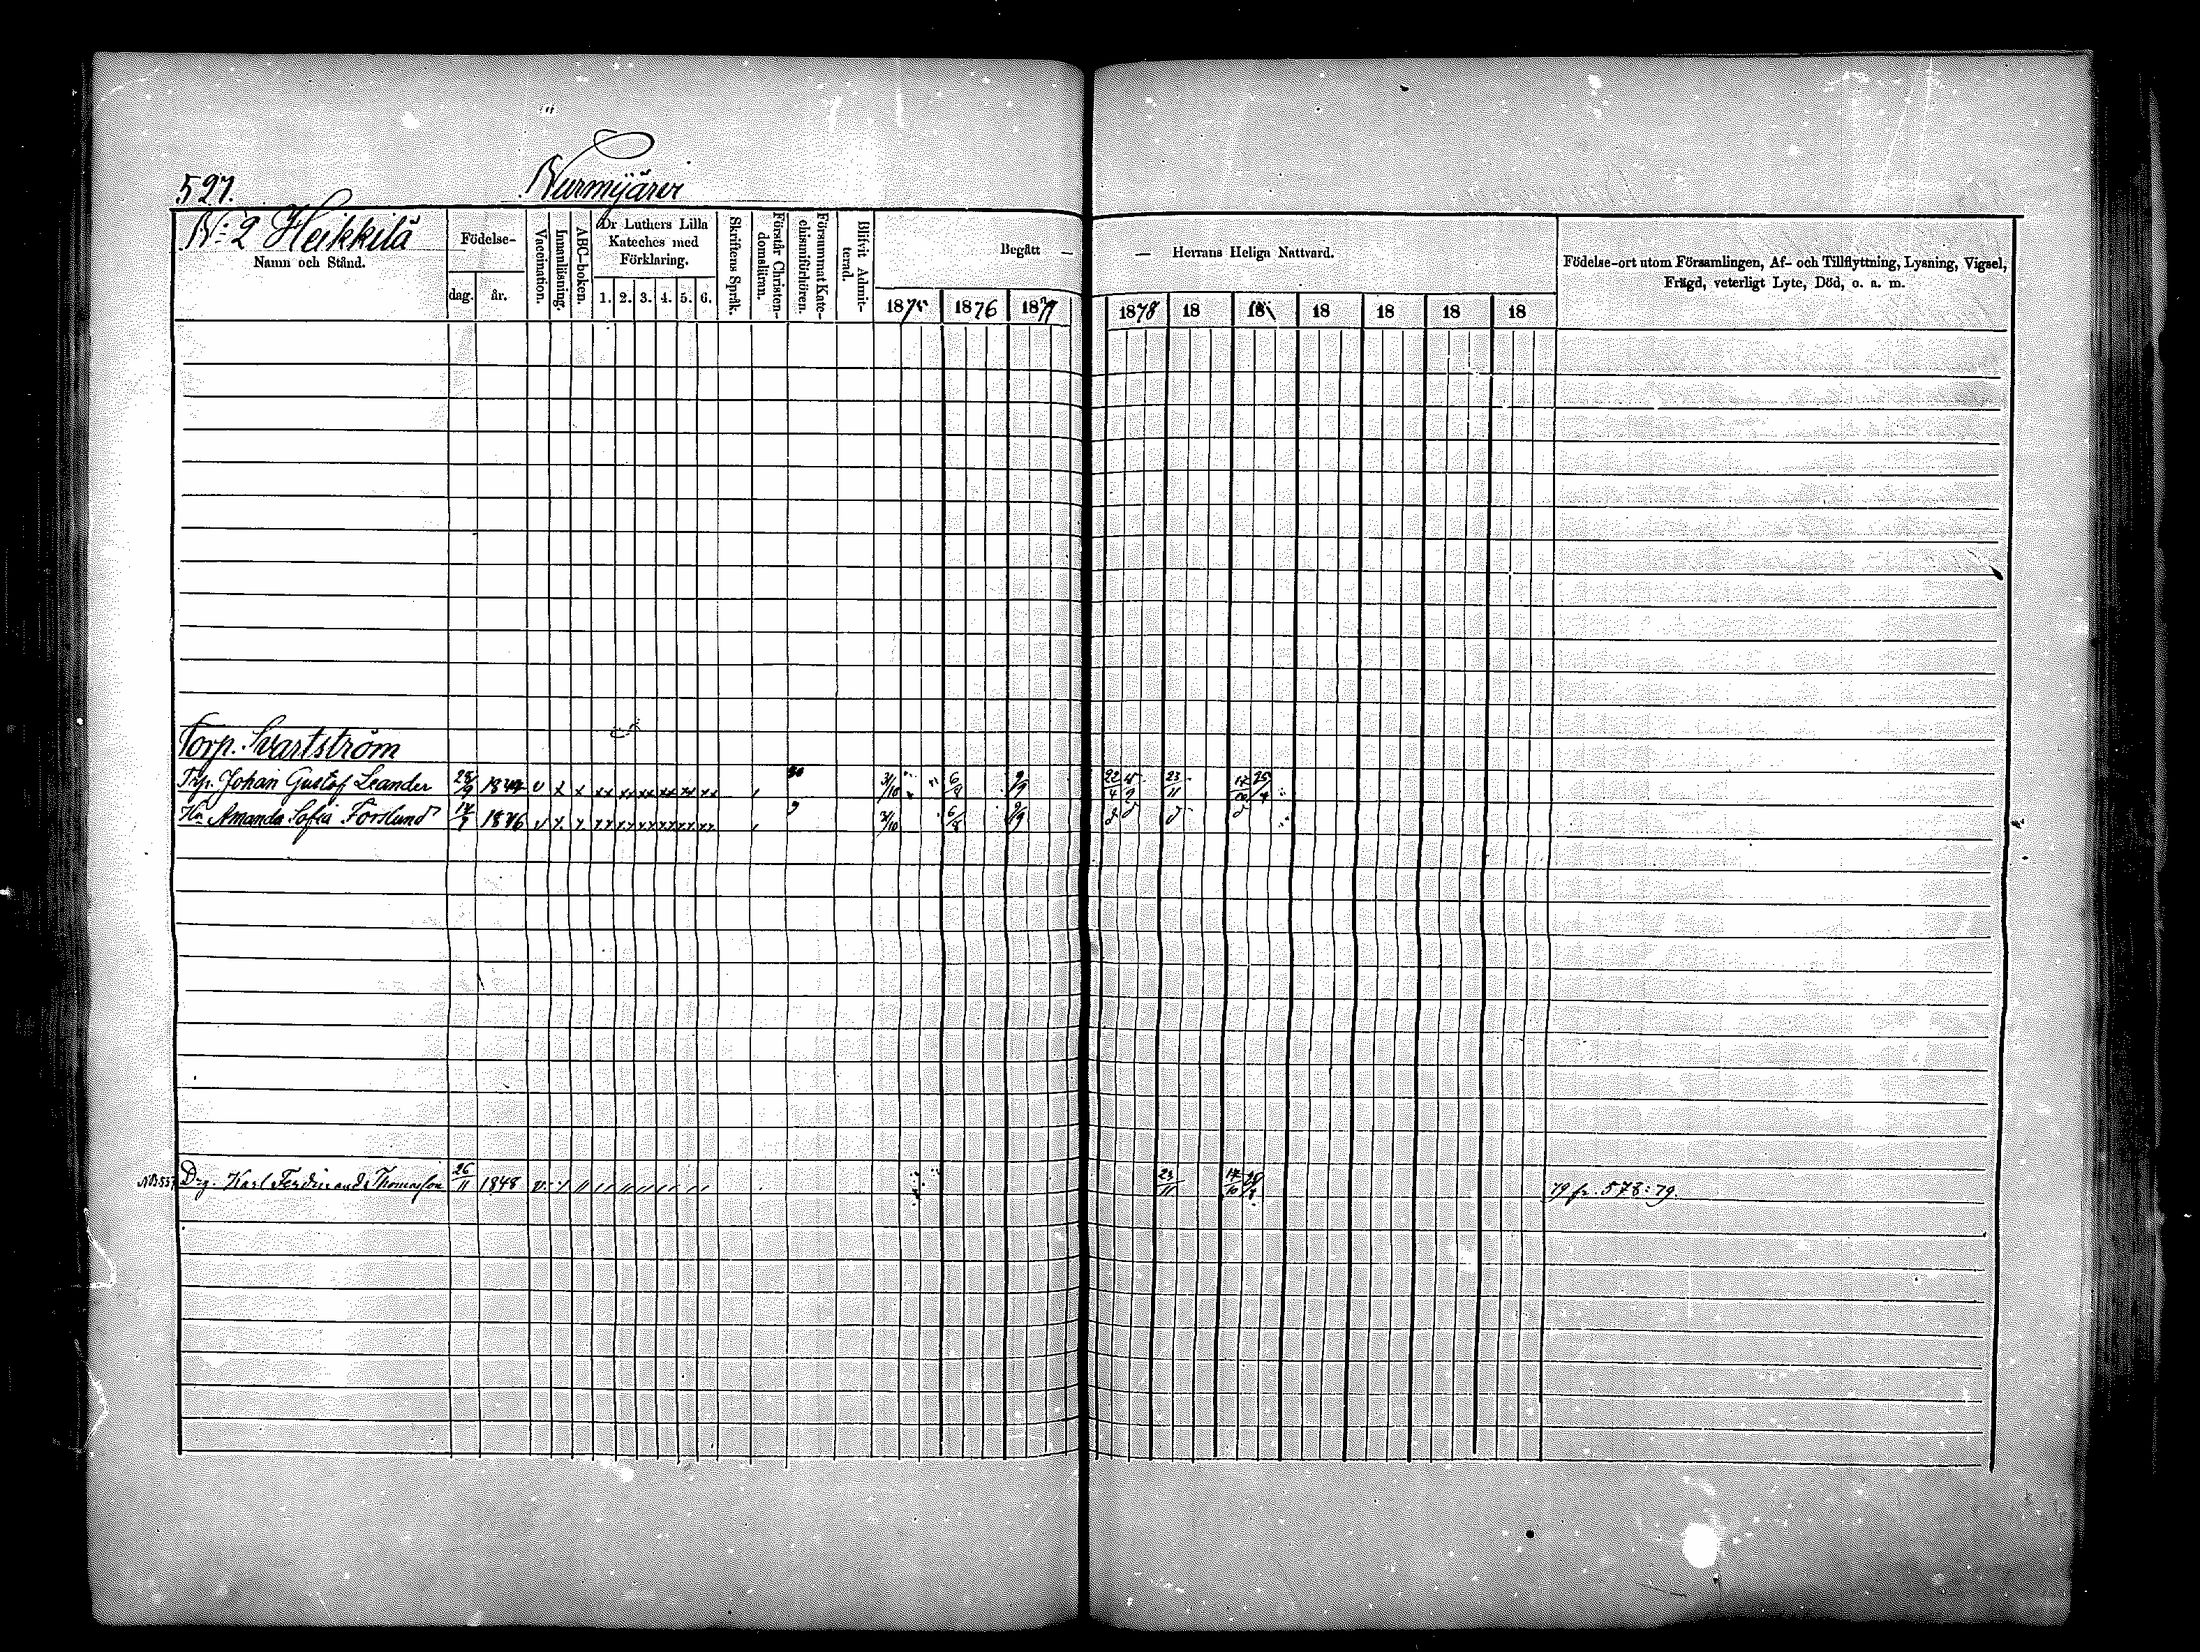 527.
Nurmijärvi
N:o 2 Heikkilä
Namn och Stånd.
Födelse-
dag. år.
Vaccination.
Innanläsning.
ABC-boken.
Dr Luthers Lilla
Kateches med
Förklaring.
1. 2. 3. 4. 5. 6.
Skriftens Språk.
Förstår Christen-
domslämn.
Försummat Kate-
chismiförhören.
Blifvit Admit-
terad.
Begått —
— Herrans Heliga Nattvard.
1875 1876 1877 1878 18 18 18 18 18 18
Födelse-ort utom Församlingen, Af- och Tillflyttning, Lysning, Vigsel,
Frägd, veterligt Lyte, Död, o. a. m.
Torp. Svartström
Trp. Johan Gustaf Leander 28/9 1849 v x x xx xx xx xx xx xx 31/10 6/8 9/9 22/4 23/11
Hu Amanda Sofia Forslund 1846 v x x xx xx xx xx xx xx 6/8 9/9
Drg. Karl Ferdinand Thomasson 26/11 1848 v 23/11 79 fr. 578:79.